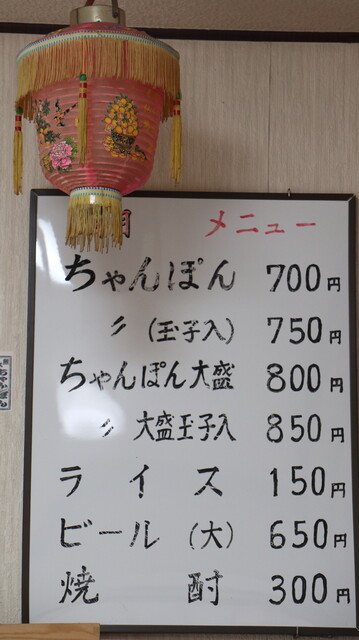 メニュー
ちゃんぽん 700円
〃 (玉子入) 750円
ちゃんぽん大盛 800円
〃 大盛玉子入 850円
ライス 150円
ビール (大) 650円
焼酎 300円
ちゃんぽん